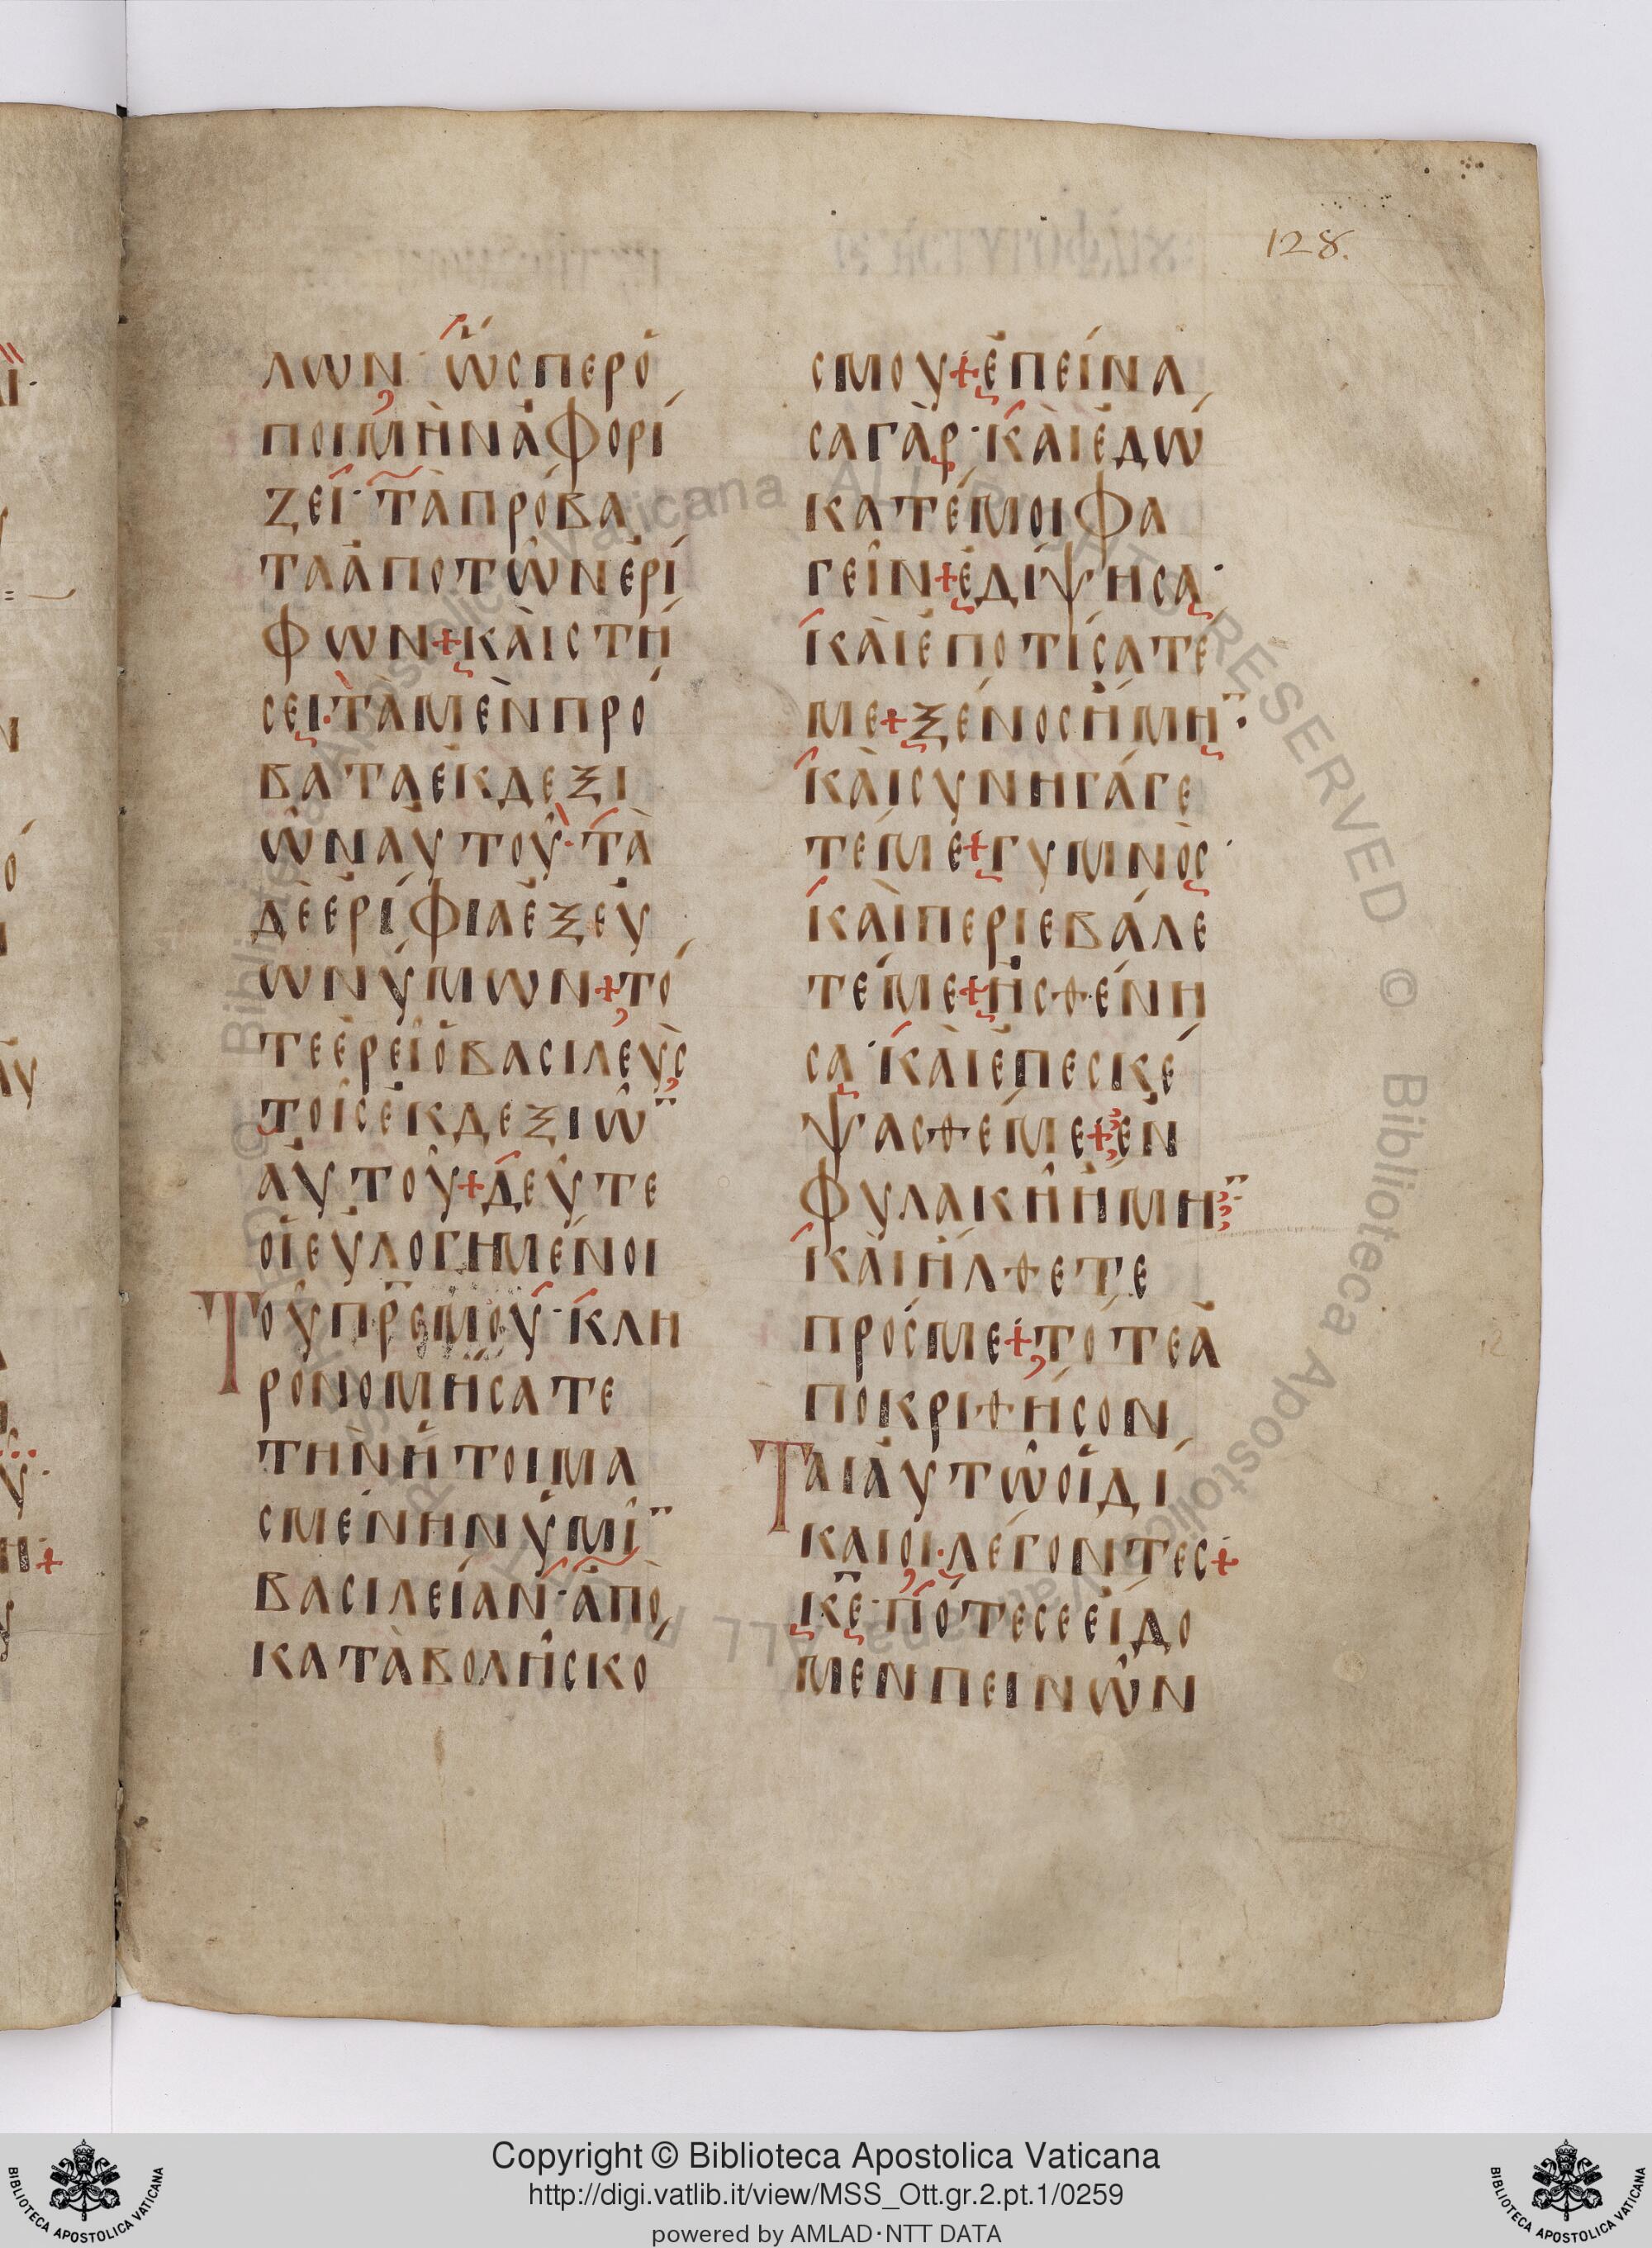 128.
λων· ὥσπερ ὁ
ποιμὴν ἀφορί
ζει· τὰ πρόβα
τα ἀπὸ τῶν ἐρί
φων + καὶ στή
σει· τὰ μὲν πρό
βατα ἐκ δεξι
ῶν αὐτοῦ· τὰ
δὲ ἐρίφια ἐξ εὐ
ωνύμων + τό
τε ἐρεῖ ὁ βασιλεὺς
τοῖς ἐκ δεξιῶ¨
αὐτοῦ + δεῦτε
οἱ εὐλογημένοι
Τοῦ πρ̅ς̅ μου· κλη
ρονομήσατε
τὴν ἡτοιμα
σμένην ὑμῖ¨
βασιλείαν· ἀπὸ
καταβολῆς κό
σμου + ἐπείνα
σα γὰρ· καὶ ἐδώ
κατέ μοι φα
γεῖν + ἐδίψησα·
καὶ ἐποτίσατέ
με + ξένος ἤμη¨·
καὶ συνηγάγε
τέ με + γυμνὸς·
καὶ περιεβάλε
τέ με + ἠσθένη
σα· καὶ ἐπεσκέ
ψασθέ με + ἐν
φυλακῇ ἤμη¨·
καὶ ἤλθετε
πρός με + τότε ἀ
ποκριθήσον
Ται αὐτῷ οἱ δί
καιοι· λέγοντες +
κ̅ε̅· πότε σε εἴδο
μεν πεινῶν
Copyright © Biblioteca Apostolica Vaticana
http://digi.vatlib.it/view/MSS_Ott.gr.2.pt.1/0259
powered by AMLAD·NTT DATA